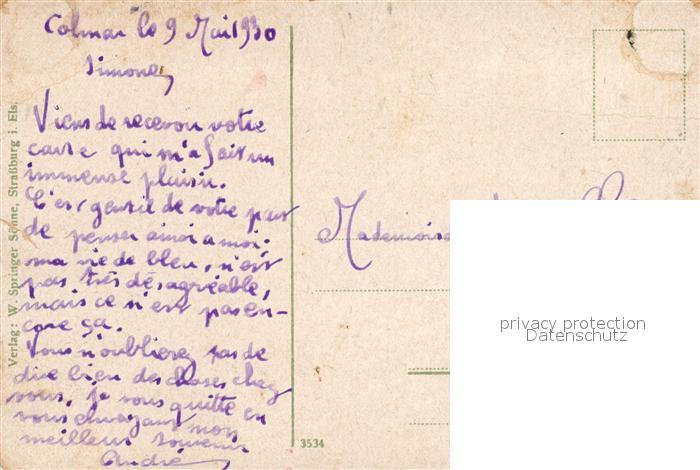 Colmar le 9 Mai 1930
Simone,
Viens de recevoir votre
carte qui m'a fait un
immense plaisir.
C'est gentil de votre part
de penser ainsi a moi.
ma vie de bleu, n'est
pas très désagréable,
mais ce n'est pas en-
core ça.
Vous n'oublierez pas de
dire bien des choses chez
vous, je vous quitte en
vous envoyant mon
meilleur souvenir
André
Verlag: W. Springer Söhne, Straßburg i. Els.
Mademoise
privacy protection
Datenschutz
3534